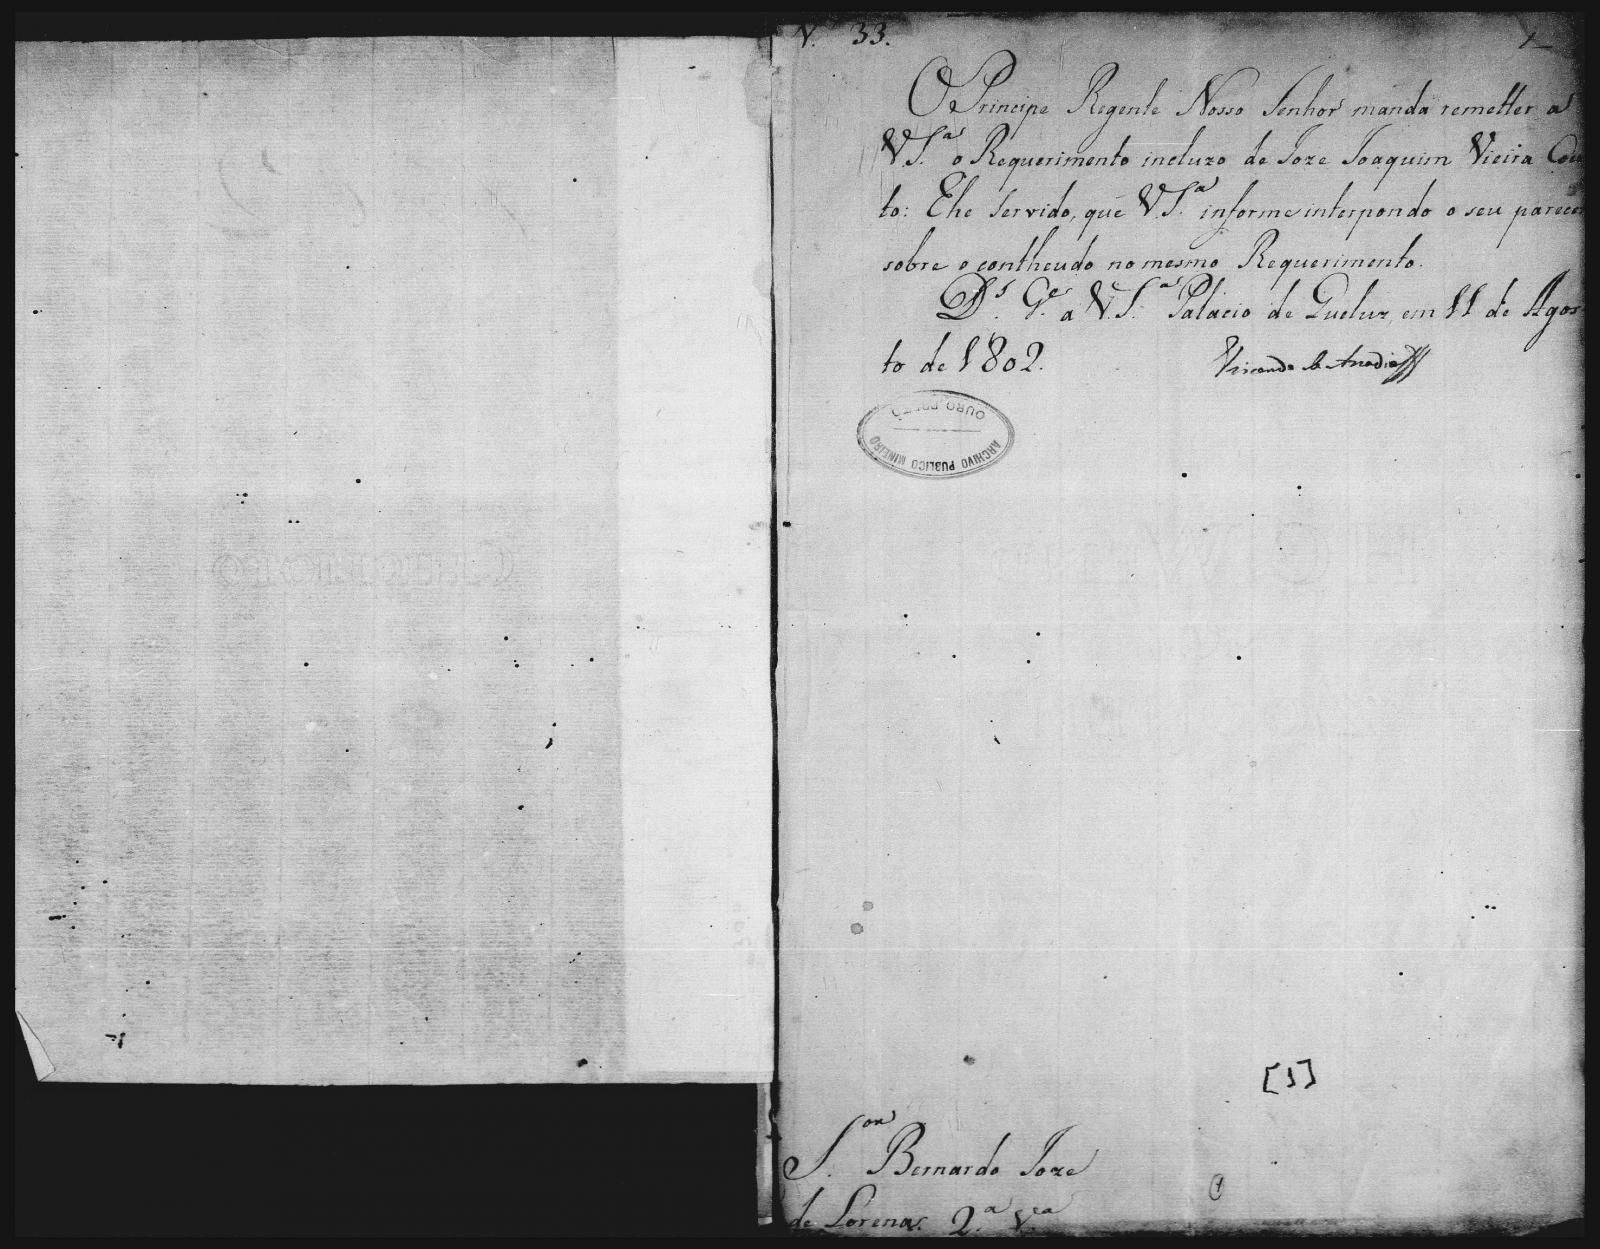 N. 33.
1
O Principe Regente Nosso Senhor manda remetter a
V.S.ª o Requerimento incluzo de Joze Joaquim Vieira Cou
to: E he servido, que V.S.ª informe interpondo o seu parecer
sobre o contheudo no mesmo Requerimento.
D.s G.e a V.S.ª Palacio de Queluz, em 11 de Agos
to de 1802.
Visconde de Anadia
ARCHIVO PUBLICO MINEIRO
OURO PRETO
[1]
S.or Bernardo Joze
de Lorena. 2.ª v.ea